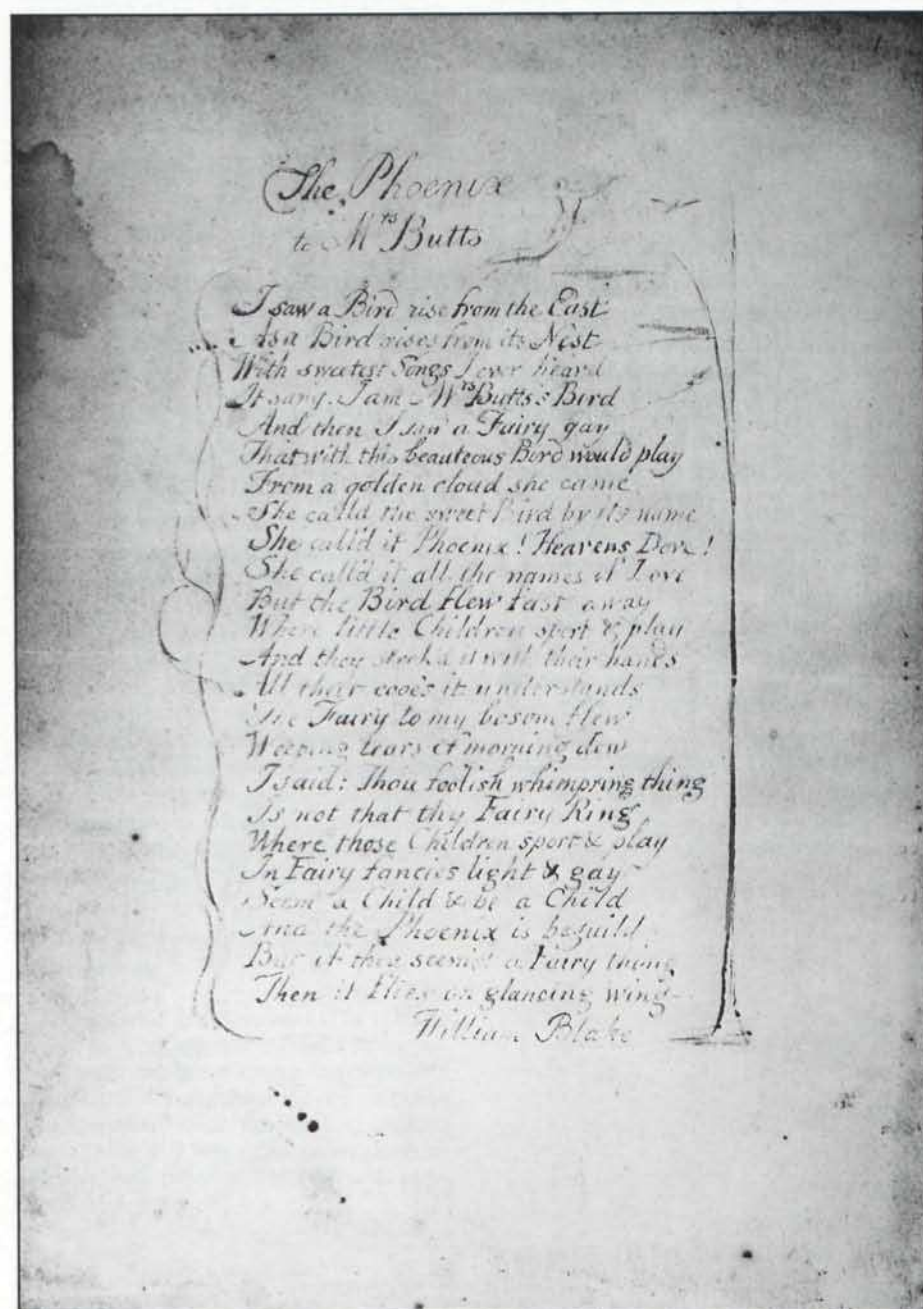 The Phoenix
to Mrs Butts
I saw a Bird rise from the East
As a Bird rises from its Nest
With sweetest Songs I ever heard
It sang I am Mrs Butts's Bird
And then I saw a Fairy gay
That with this beauteous Bird would play
From a golden cloud she came
She calld the sweet Bird by its name
She call'd it Phoenix! Heavens Dove!
She call'd it all the names of Love
But the Bird flew fast away
Where little Children sport & play
And they strok'd it with their hands
All their cooe's it understands
The Fairy to my bosom flew
Weeping tears of morning dew
I said: Thou foolish whimpring thing
Is not that thy Fairy Ring
Where those Children sport & play
In Fairy fancies light & gay
Seem a Child & be a Child
And the Phoenix is beguild
But if thou seem'st a Fairy thing
Then it flies on glancing wing
William Blake